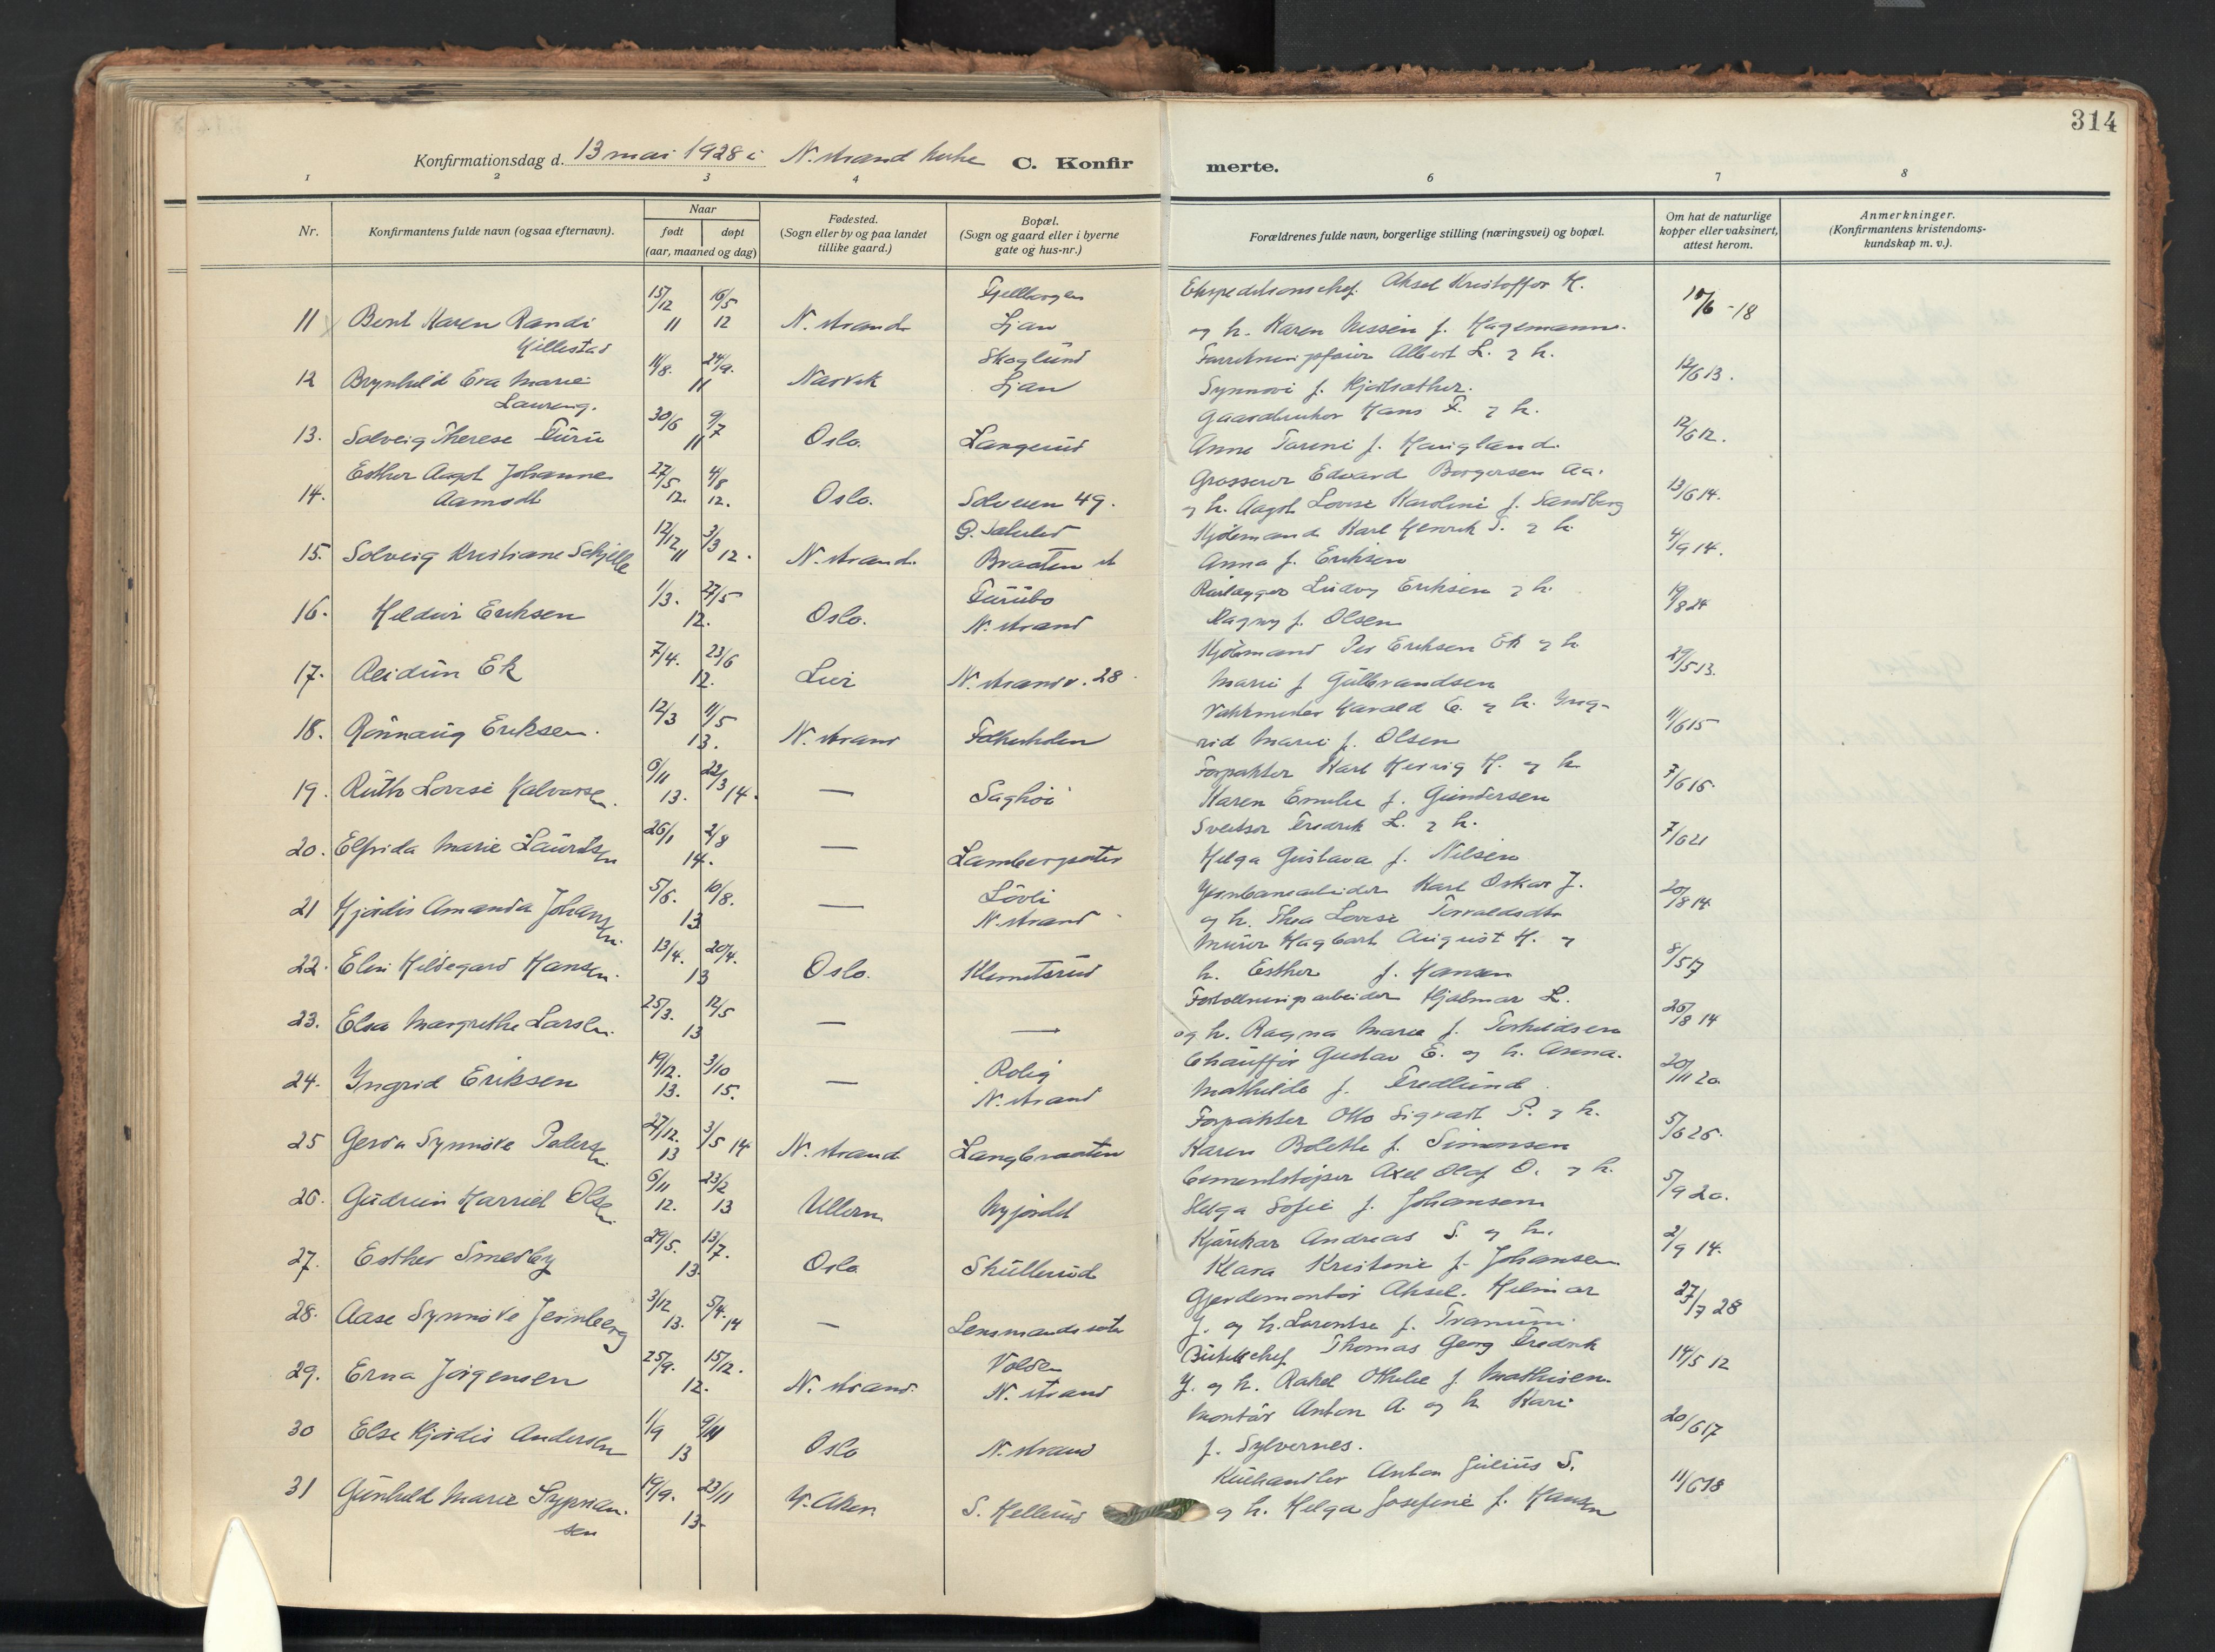 314
Konfirmationsdag d. 13 mai 1928 i N. strand kirke C. Konfir merte.
1 2 3 4 6 7 8
Nr.
Konfirmantens fulde navn (ogsaa efternavn).
Naar
født
døpt
(aar, maaned og dag)
Fødested.
(Sogn eller by og paa landet
tillike gaard.)
Bopæl.
(Sogn og gaard eller i byerne
gate og hus-nr.)
Forældrenes fulde navn, borgerlige stilling (næringsvei) og bopæl.
Om hat de naturlige
kopper eller vaksinert,
attest herom.
Anmerkninger.
(Konfirmantens kristendoms-
kundskap m. v.).
15/12 16/5 Fjellborgen Ekspeditionschef Aksel Kristoffer H.
11 Bent Karen Randi 11 12 N. strand Ljan og h. Karen Nissen f. Hagemann. 10/6 -18
Hillestad
14/8. 24/9. Skoglund Albert L. og h.
12 Brynhild Eva Marie 11 Narvik Ljan Synnøve f. 12/6 13.
Laureng.
30/6 9/7 Gaardbruker Hans F. og h.
13. Solveig Therese Furu 11 Oslo. Langerud Anne f. Haugland. 12/6 12.
Esther Aagot Johanne 27/5 4/8 Grosserer Edvard Borgersen Aa.
14. Aamodt 12. 12. Oslo. Solveien 49. og h. Aagot Lovise Karoline f. Sandberg 13/6 14.
12/12 3/3 Kjøbmand Karl Henrik S. og h.
15. Solveig Kristiane Schjelle 11 12. N. strand. Braaten Anna f. Eriksen 4/9 14.
1/3. 27/5 Furubo Rørlegger Ludvig Eriksen og h.
16. Hildur Eriksen 12. Oslo. N. strand Magny f. Olsen 19/8 24
7/4. 23/6 Kjøbmand Per Eriksen Ek og h.
17. Reidun Ek 12. N. strandv. 28. Marie f. Gulbrandsen 29/5 13.
12/3 11/5 Vaktmester Harald E. og h. Ing-
18. Rønnaug Eriksen. 13. N. strand Folkeholen rid Marie f. Olsen 11/6 15
6/11 22/3 Forpakter Karl H. og h.
19. Ruth Lovise Halvorsen. 13. 14. — Saghøi Karen Emilie f. Gundersen 7/6 15.
26/1 2/8 Sveitser Fredrik L. og h.
20. Elfrida Marie Lauritsen 14. — Lambergsæter Helga Gustava f. Nilsen 7/6 21
5/6. 10/8. Løvli Jernbanearbeider Karl Oskar J.
21 Hjørdis Amanda Johansen. 13 — N. strand og h. Thea Lovise Torvaldsdtr 20/8 14
13/4. 20/4. Murer Hagbart August H. og
22. Elin Hildegard Hansen. 13 Oslo. Klemetsrud h. Esther f. Hansen 8/5 17
25/3. 12/5 Hjalmar L.
23. Elsa Margrethe Larsen. 13 — — og h. Ragna Marie f. Torkildsen 26/8 14
19/12. 3/10 Rolig Chauffør Gustav E. og h. Anna.
24. Ingrid Eriksen 13. 15. — N. strand Mathilde f. Fredlund. 20/11 20.
27/12. 3/5 14 Forpakter Otto Sigvart P. og h.
25 Gerda Synnøve Pedersen 13 N. strand Langbraaten Karen Bolette f. Simonsen 5/6 25.
6/11 23/2 Cementstøper Axel Olaf O. og h.
26. Gudrun Harriet Olsen. 12. 13 Ullern Nyjordet Helga Sofie f. Johansen 5/9 20.
29/5. 13/7. Kjørekar Andreas S. og h.
27. Esther Smedby 13. Oslo Skullerud Klara Kristine f. Johansen 2/9 14.
3/12 5/4. Gjerdemontør Aksel. Hilmar
28. Aase Synnøve Jernberg 13. 14 — Lensmandssæter J. og h. Lorentse f. Tranum. 27/7 28
25/9. 15/12. Volden Thomas Georg Fredrik
29. Erna Jørgensen 12. N. strand. N. strand J. og h. Rakel Othilie f. Mathisen. 14/5 12
1/9 9/11 Montør Anton A. og h. Kari
30 Else Hjørdis Andersen 13 Oslo N. strand f. Sylvernes. 20/6 17
19/9. 23/11 Kulhandler Anton Julius S.
31 Gunhild Marie Syprian- 13. V. Aker. S. Hellerud og h. Helga Josefine f. Hansen 11/6 18
sen